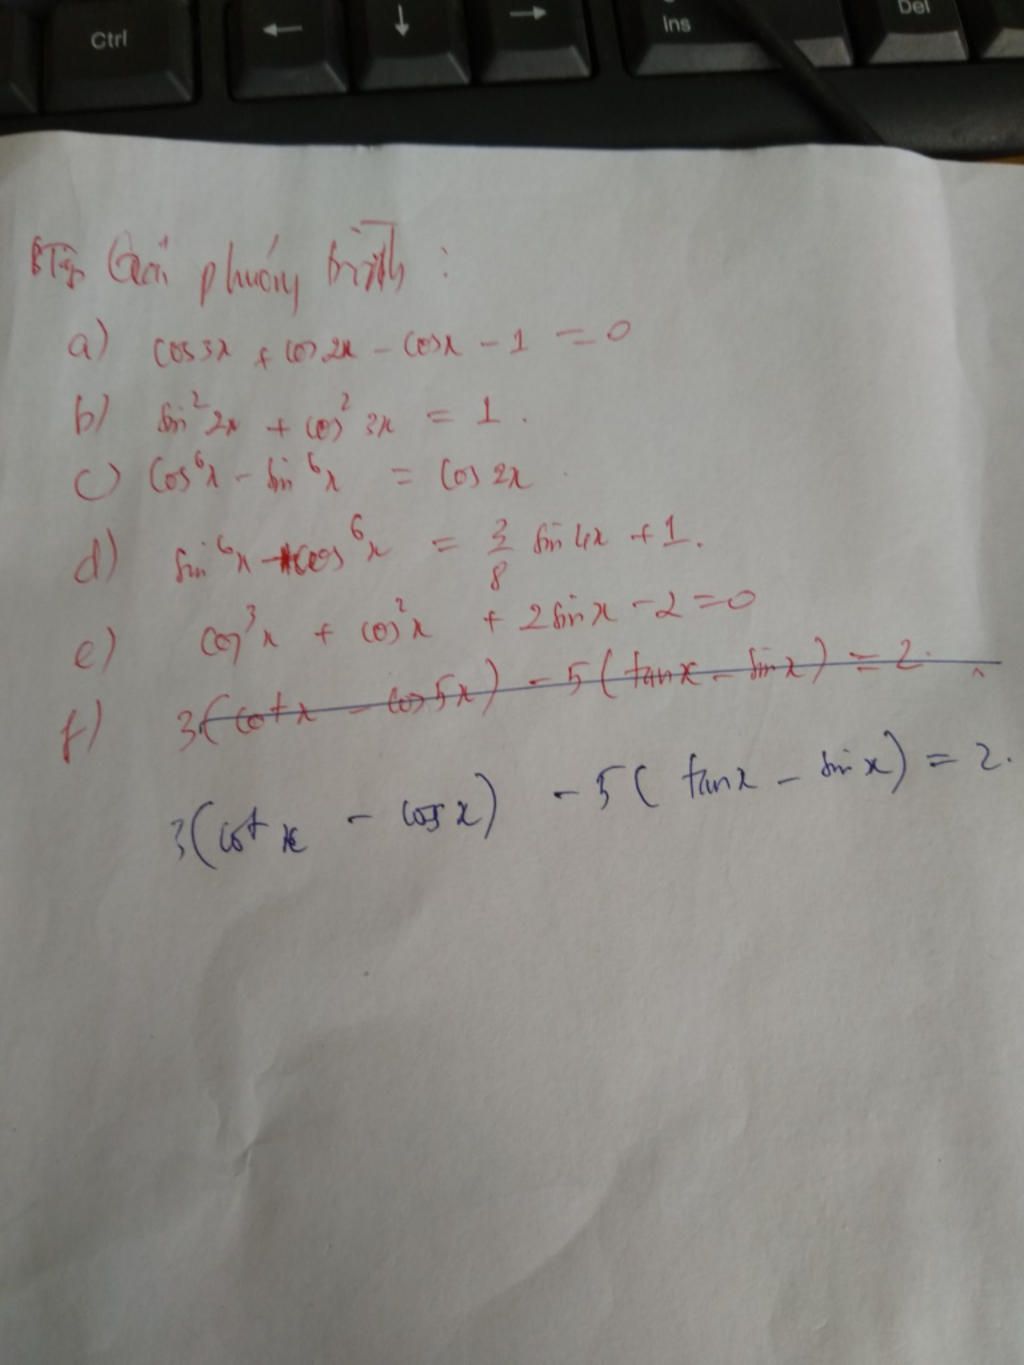 Ctrl
←
↓
→
Ins
Del
BTập Giải phương trình :
a) cos3x + cos2x - cosx - 1 = 0
b) sin²2x + cos²3x = 1.
c) cos⁶x - sin⁶x = cos2x
d) sin⁶x + cos⁶x = 3/8 sin4x + 1.
e) cos³x + cos²x + 2sinx - 2 = 0
f) 3(cotx - cos5x) - 5(tanx - sinx) = 2.
3(cotx - cosx) - 5(tanx - sinx) = 2.